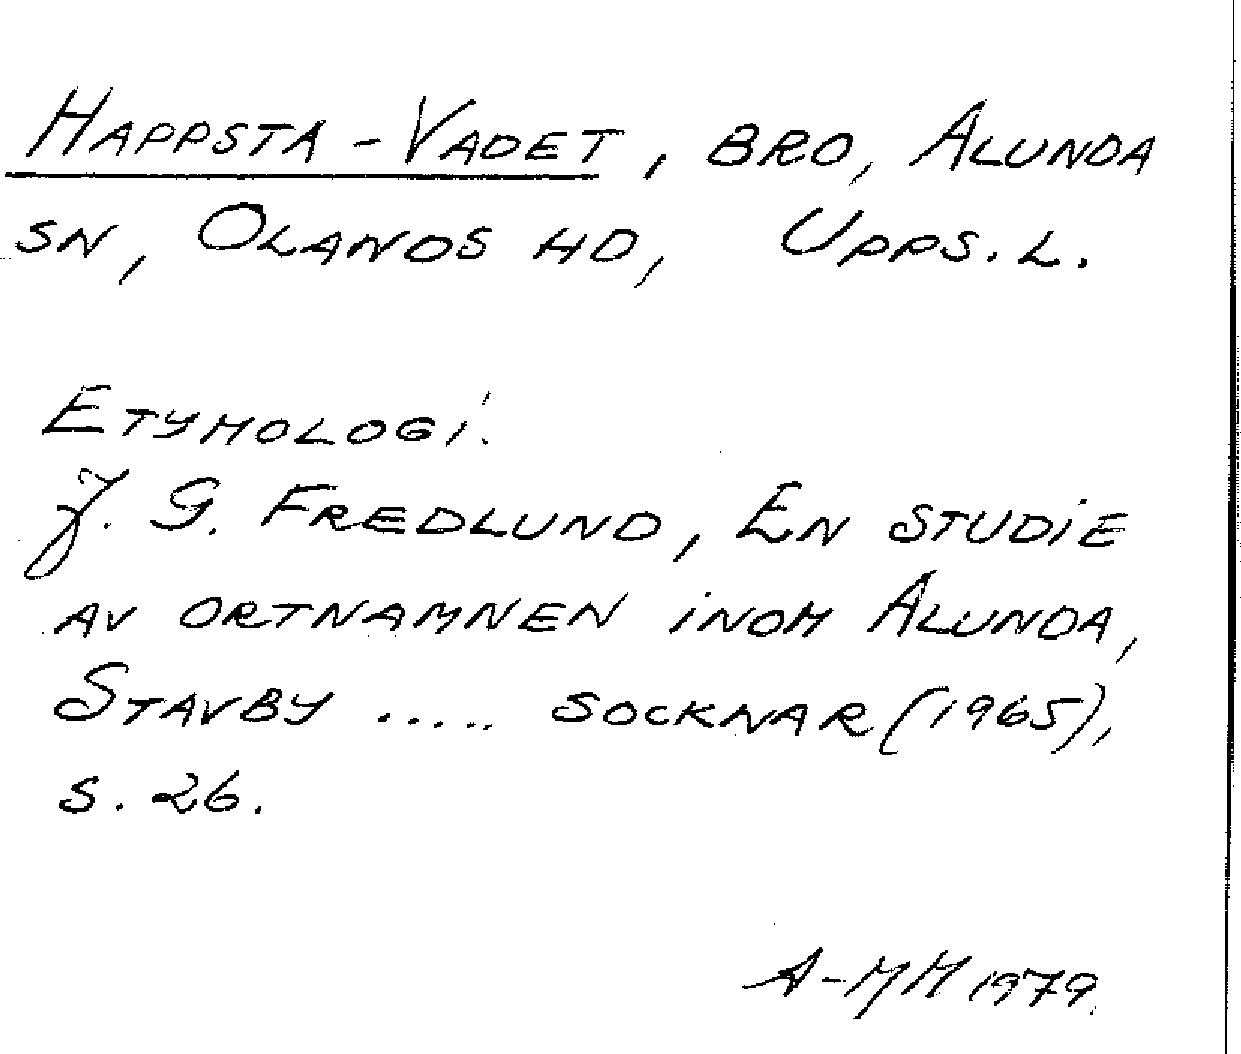 HAPPSTA-VADET, BRO, ALUNDA
SN, OLANDS HD, UPPS. L.
ETYMOLOGI:
J. G. FREDLUND, EN STUDIE
AV ORTNAMNEN INOM ALUNDA,
STAVBY ..... SOCKNAR (1965),
S. 26.
A-MM 1979.